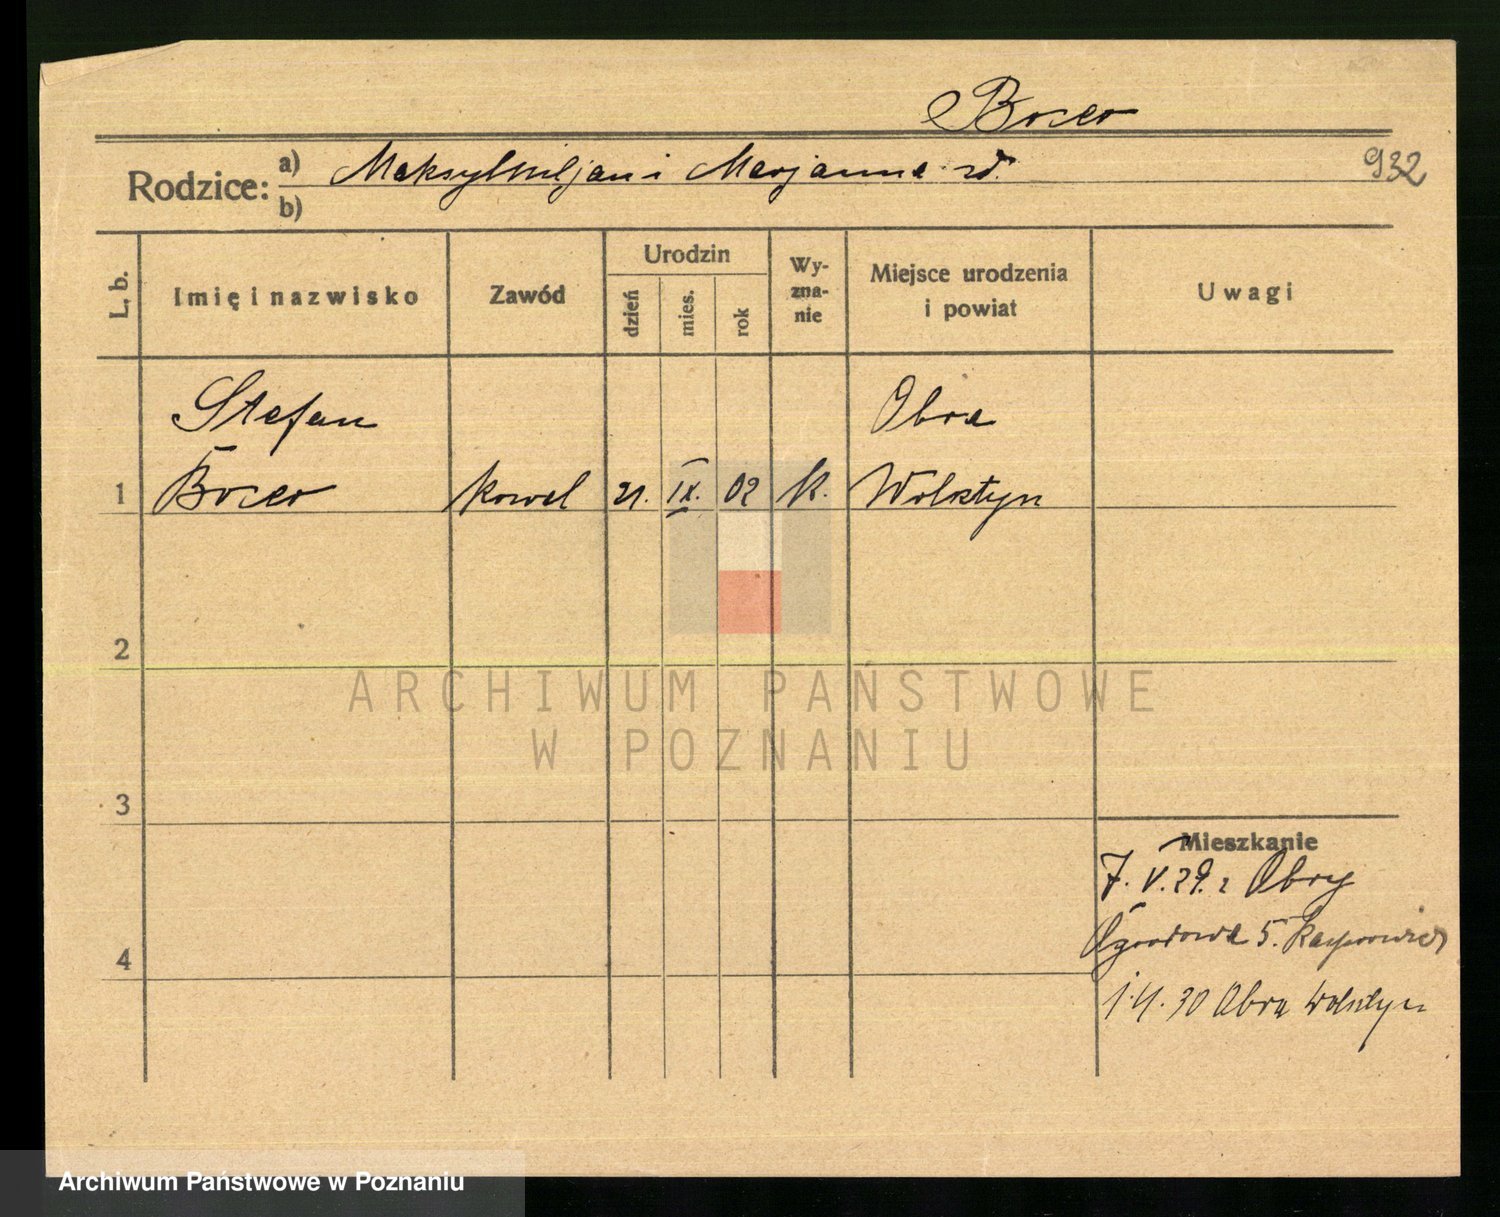 Bocer
932
Rodzice:
a) Maksylmiljan i Marjanna zd.
b)
L. b.
Imię i nazwisko
Zawód
Urodzin
dzień
mies.
rok
Wy-
zna-
nie
Miejsce urodzenia
i powiat
Uwagi
Stefan
Obra
1 Bocer kowal 21. IX. 02 k. Wolsztyn
2
ARCHIWUM PAŃSTWOWE
W POZNANIU
3
Mieszkanie
7. V. 29. z Obry
Ogrodowa 5.
4
Obra Wolsztyn
Archiwum Państwowe w Poznaniu